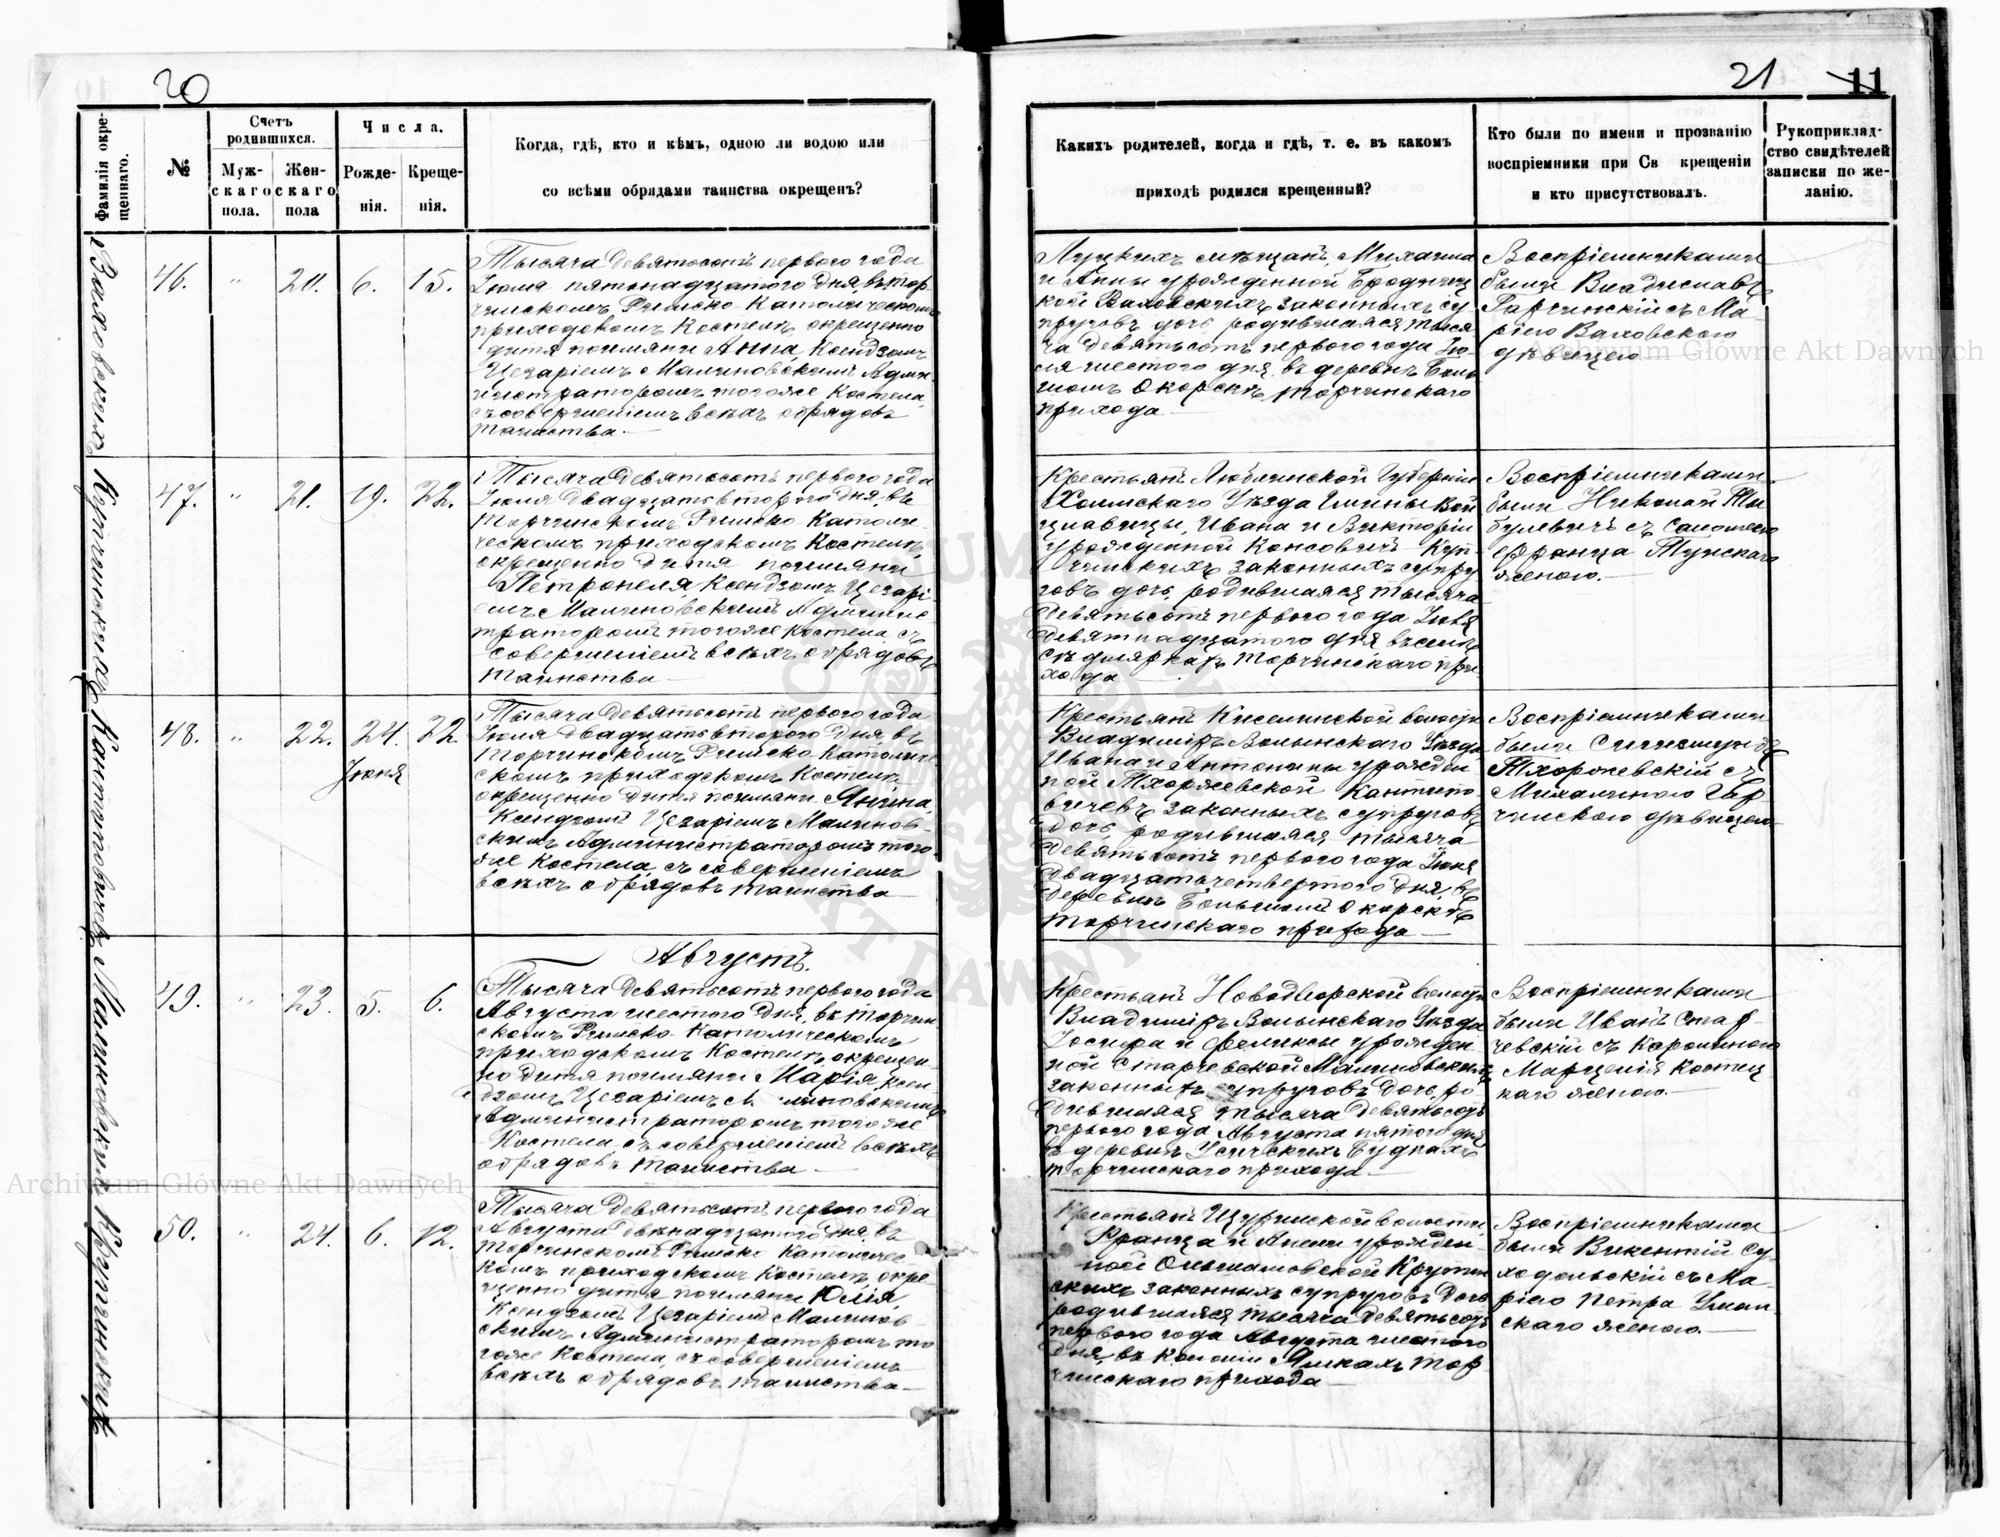 20
Фамилія окре-
щеннаго.
№
Счетъ
родившихся.
Муж-
скаго
пола.
Жен-
скаго
пола
Числа.
Рожде-
нія.
Креще-
нія.
Когда, гдѣ, кто и кѣмъ, одною ли водою или
со всѣми обрядами таинства окрещенъ?
Ваховскихъ
46.
"
20.
6.
15.
Тысяча девятьсотъ первого года
Іюля пятьнадцатого дня, въ Тор-
чинскомъ Римско-Католическомъ
приходскомъ Костелѣ, окрещенно
дитя поимяни Анна, Ксендзомъ
Цезаріемъ Малиновскимъ Адми-
нистраторомъ тогоже Костела,
съ совершеніемъ всѣхъ обрядовъ
таинства.
Купчинскихъ
47.
"
21.
19.
22.
Тысяча девятьсотъ первого года
Іюля двадцать второго дня, въ
Торчинскомъ Римско-Католи-
ческомъ приходскомъ Костелѣ,
окрещенно дитя поимяни
Петронеля, Ксендзомъ Цезарі-
емъ Малиновскимъ Админис-
траторомъ тогоже Костела, съ
совершеніемъ всѣхъ обрядовъ
таинства
48.
"
22.
24.
Іюня
22.
Тысяча девятьсотъ первого года
Іюля двадцать второго дня въ
Торчинскомъ Римско-Католиче-
скомъ приходскомъ Костелѣ,
окрещенно дитя поимяни Янина,
Ксендзомъ Цезаріемъ Малинов-
скимъ Администраторомъ того-
же Костела, съ совершеніемъ
всѣхъ обрядовъ таинства
Малиновскихъ
Августъ.
49.
"
23.
5.
6.
Тысяча девятьсотъ первого года
Августа шестого дня, въ Торчин-
скомъ Римско-Католическомъ
приходскомъ Костелѣ, окрещен-
но дитя поимяни Марія, Ксен-
дзомъ Цезаріемъ М линовскимъ
Администраторомъ тогоже
Костела съ совершеніемъ всѣхъ
обрядовъ таинства
50.
"
24.
6.
12.
Тысяча девятьсотъ первого года
Августа двѣнадцатого дня, въ
Торчинскомъ Римско Католичес-
комъ приходскомъ Костелѣ, окре-
щенно дитя поимяни Юлія,
Ксендзомъ Цезаріемъ Малинов-
скимъ Администраторомъ то-
гоже Костела, съ совершеніемъ
всѣхъ обрядовъ таинства
21
11
Какихъ родителей, когда и гдѣ, т. е. въ какомъ
приходѣ родился крещенный?
Кто были по имени и прозванію
воспріемники при Св крещеніи
и кто присутствовалъ.
Рукоприклад-
ство свидѣтелей
записки по же-
ланію.
Луцкихъ мѣщанъ, Михаила
и Анны урожденной
кой Ваховскихъ, законныхъ су-
пруговъ дочь, родившаяся тыся-
ча девятьсотъ первого года Ію-
ля шестого дня, въ деревнѣ Боль-
шомъ Окорскѣ, Торчинскаго
прихода
Воспріемниками
были Владиславъ
Гарчинскій съ Ма-
ріею Ваховскою
дѣвицею
Крестьянъ Люблинской Губерніи
Холмскаго Уѣзда Гмины Вой-
славицы, Ивана и Викторіи
урожденной Консовичъ Куп-
чинскихъ законныхъ супру-
говъ дочь, родившаяся тысяча
девятьсотъ первого года Іюля
девятнадцатого дня въ селѣ
Торчинскаго при-
хода
Воспріемниками
были Николай
съ Саломеею
Франца
женою.
Крестьянъ Киселинской волости
Владиміръ-Волынскаго Уѣзда
Ивана и Антонины урожден-
ной Тхоржевской
законныхъ супруговъ
дочь, родившаяся тысяча
девятьсотъ первого года Іюня
двадцать четвертого дня, въ
деревнѣ Большомъ Окорскѣ
Торчинскаго прихода
Воспріемниками
были Сигизмундъ
Тхоржевскій съ
Михалиною Гар-
чинскою дѣвицею
Крестьянъ Новодворской волости
Владиміръ-Волынскаго Уѣзда
Іосифа и Феликсы урожден-
ной Старчевской Малиновскихъ
законныхъ супруговъ дочь, ро-
дившаяся тысяча девятьсотъ
первого года Августа пятого дня
въ деревнѣ Усичскихъ Будкахъ
Торчинскаго прихода.
Воспріемниками
были Иванъ Стар-
чевскій съ Каролиною
женою.
Крестьянъ Щуринской волости
Франца и Анели урожден-
ной Ольшановской Крутин-
скихъ законныхъ супруговъ дочь
родившаяся тысяча девятьсотъ
первого года Августа шестого
дня, въ колоніи Тор-
чинскаго прихода
Воспріемниками
были Викентій Су-
ходольскій съ Ма-
ріею Петра Уман-
скаго женою.
Archiwum Główne Akt Dawnych
Archiwum Główne Akt Dawnych